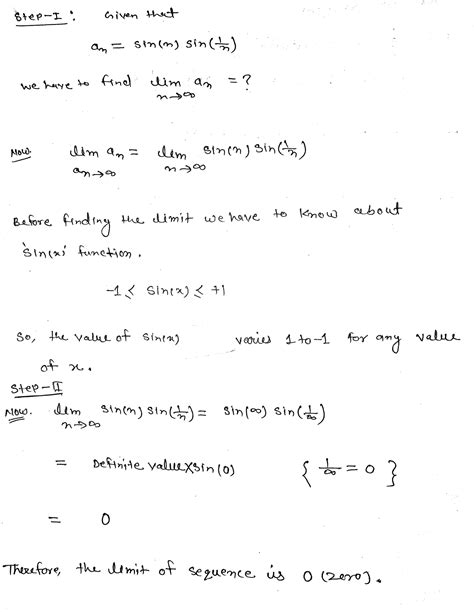 Step-I : Given that
an = sin(n) sin(1/n)
we have to find lim n→∞ an = ?
Now lim an→∞ an = lim n→∞ sin(n) sin(1/n)
Before finding the limit we have to know about
'sin(x)' function.
-1 ≤ sin(x) ≤ +1
So, the value of sin(x) varies 1 to -1 for any value
of x.
Step-II
Now. lim n→∞ sin(n) sin(1/n) = sin(∞) sin(1/∞)
= Definite value x sin(0) { 1/∞ = 0 }
= 0
Therefore, the limit of sequence is 0 (zero).